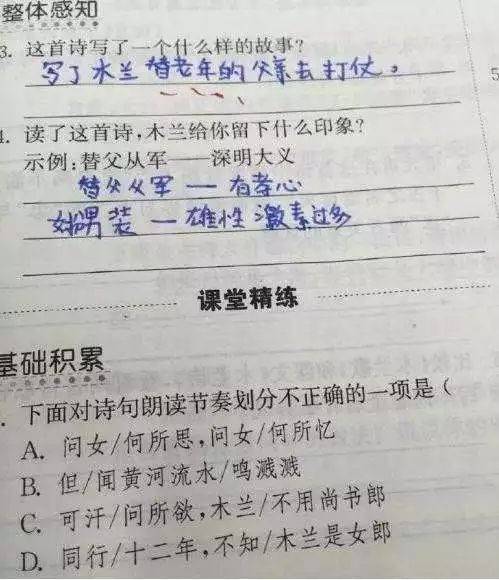 整体感知
3. 这首诗写了一个什么样的故事?
写了木兰替老年的父亲去打仗。
4. 读了这首诗,木兰给你留下什么印象?
示例:替父从军——深明大义
替父从军 — 有孝心
女扮男装 — 雄性激素过多
课堂精练
基础积累
. 下面对诗句朗读节奏划分不正确的一项是(
A. 问女/何所思,问女/何所忆
B. 但/闻黄河流水/鸣溅溅
C. 可汗/问所欲,木兰/不用尚书郎
D. 同行/十二年,不知/木兰是女郎